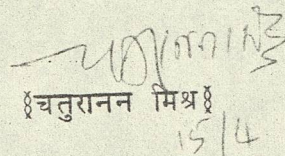 §चतुरानन मिश्र§
15/4